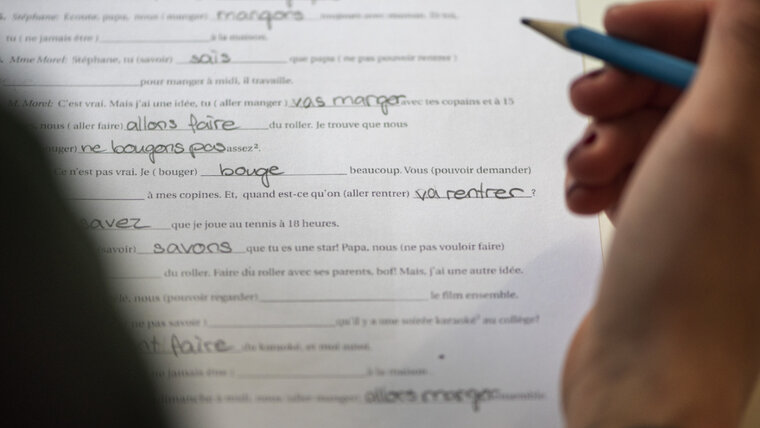 Stéphane: Ecoute, papa, nous (manger) mangons
tu ( ne jamais être ) à la maison.
Mme Morel: Stéphane, tu (savoir) sais que papa ( ne pas pouvoir rentrer )
pour manger à midi, il travaille.
M. Morel: C'est vrai. Mais j'ai une idée, tu ( aller manger ) vas marger avec tes copains et à 15
nous ( aller faire) allons faire du roller. Je trouve que nous
ne bougons pas assez².
Ce n'est pas vrai. Je ( bouger) bouge beaucoup. Vous (pouvoir demander)
à mes copines. Et, quand est-ce qu'on (aller rentrer) va rentrer ?
savez que je joue au tennis à 18 heures.
(savoir) savons que tu es une star! Papa, nous (ne pas vouloir faire)
du roller. Faire du roller avec ses parents, bof! Mais, j'ai une autre idée.
nous (pouvoir regarder) le film ensemble.
ne pas savoir ) qu'il y a une soirée karaoké au collège!
faire du karaoké, et moi aussi.
ne jamais être ) à la maison.
dimanche à midi, nous (aller manger) allors marger ensemble.